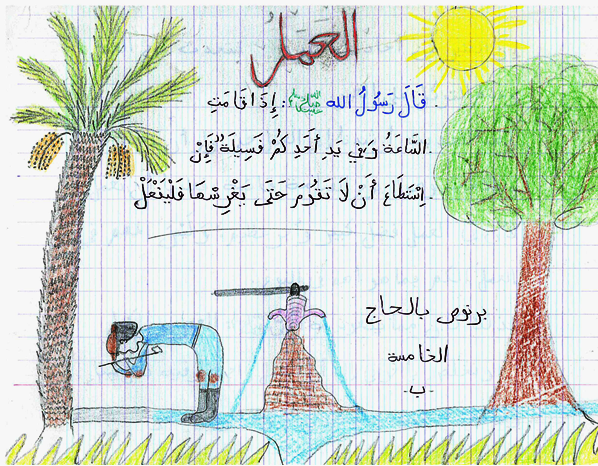 العمل
قَالَ رَسُولُ الله ﷺ : إِذَا قَامَتِ
السَّاعَةُ وَفِي يَدِ أَحَدِ كُمْ فَسِيلَة" فَإِنْ
اِسْتَطَاعَ أَنْ لَا تَقُومَ حَتَى يَغْرِسْهَا فَلْيَفْعَلْ
برنوص بالحاج
الخامسة
-ب-